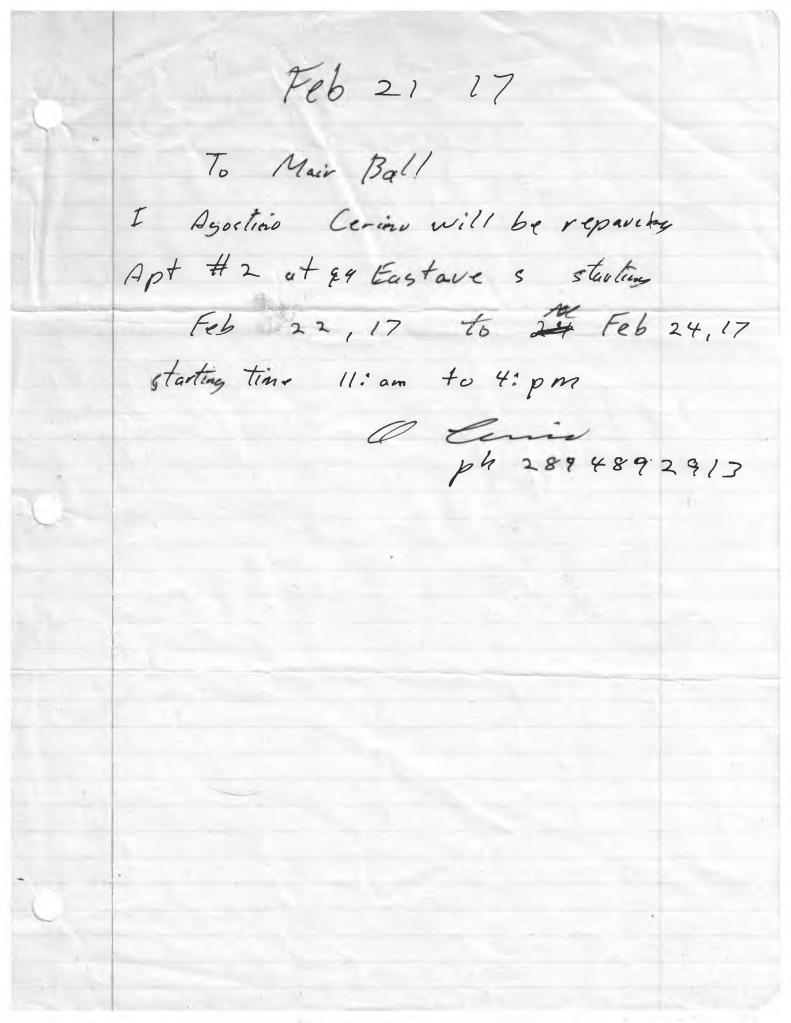 Feb 21 17
To Mair Ball
I Agostino Cerino will be repairing
Apt #2 at 99 Eastave s starting
Feb 22, 17 to Feb 24, 17
starting time 11: am to 4: pm
Cerino
ph 289 489 2913